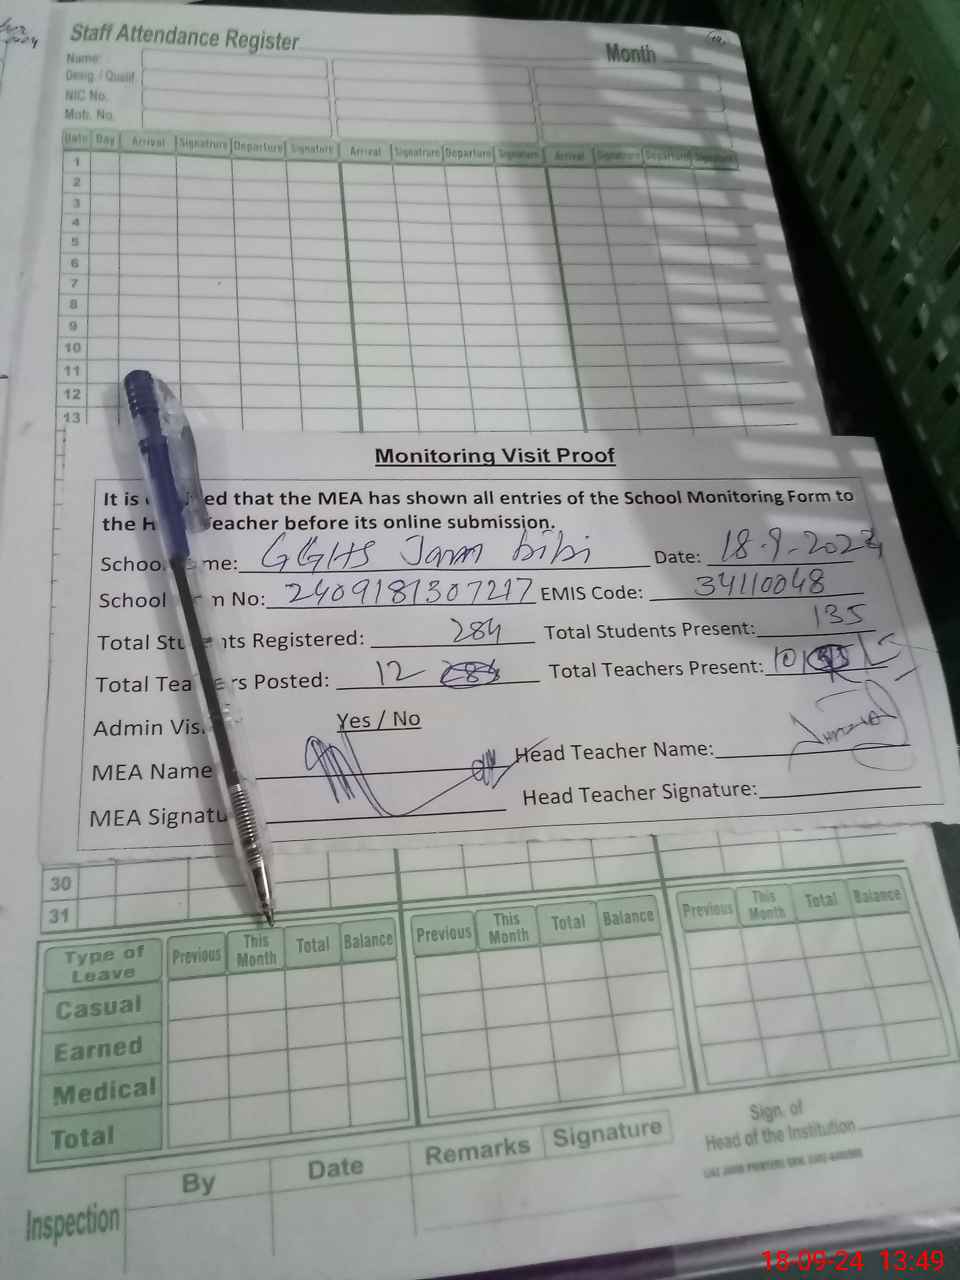 Staff Attendance Register Month
Name:
Desig. / Qualif.
NIC No.
Mob. No.
Date Day Arrival Signatrure Departure Signature Arrival Signatrure Departure Signature Arrival Signatrure Departure Signature
1
2
3
4
5
6
7
8
9
10
11
12
13
Monitoring Visit Proof
It is ed that the MEA has shown all entries of the School Monitoring Form to
the H eacher before its online submission.
School me: GGHS Jann bibi Date: 18-9-2024
School n No: 2409181307217 EMIS Code: 34110048
Total Stu nts Registered: 284 Total Students Present: 135
Total Tea rs Posted: 12 Total Teachers Present: 10
Admin Vis Yes / No
MEA Name Head Teacher Name:
MEA Signatu Head Teacher Signature:
30
31
Type of Leave Previous This Month Total Balance Previous This Month Total Balance Previous This Month Total Balance
Casual
Earned
Medical
Total
Sign. of
Head of the Institution
By Date Remarks Signature
Inspection
18-09-24 13:49